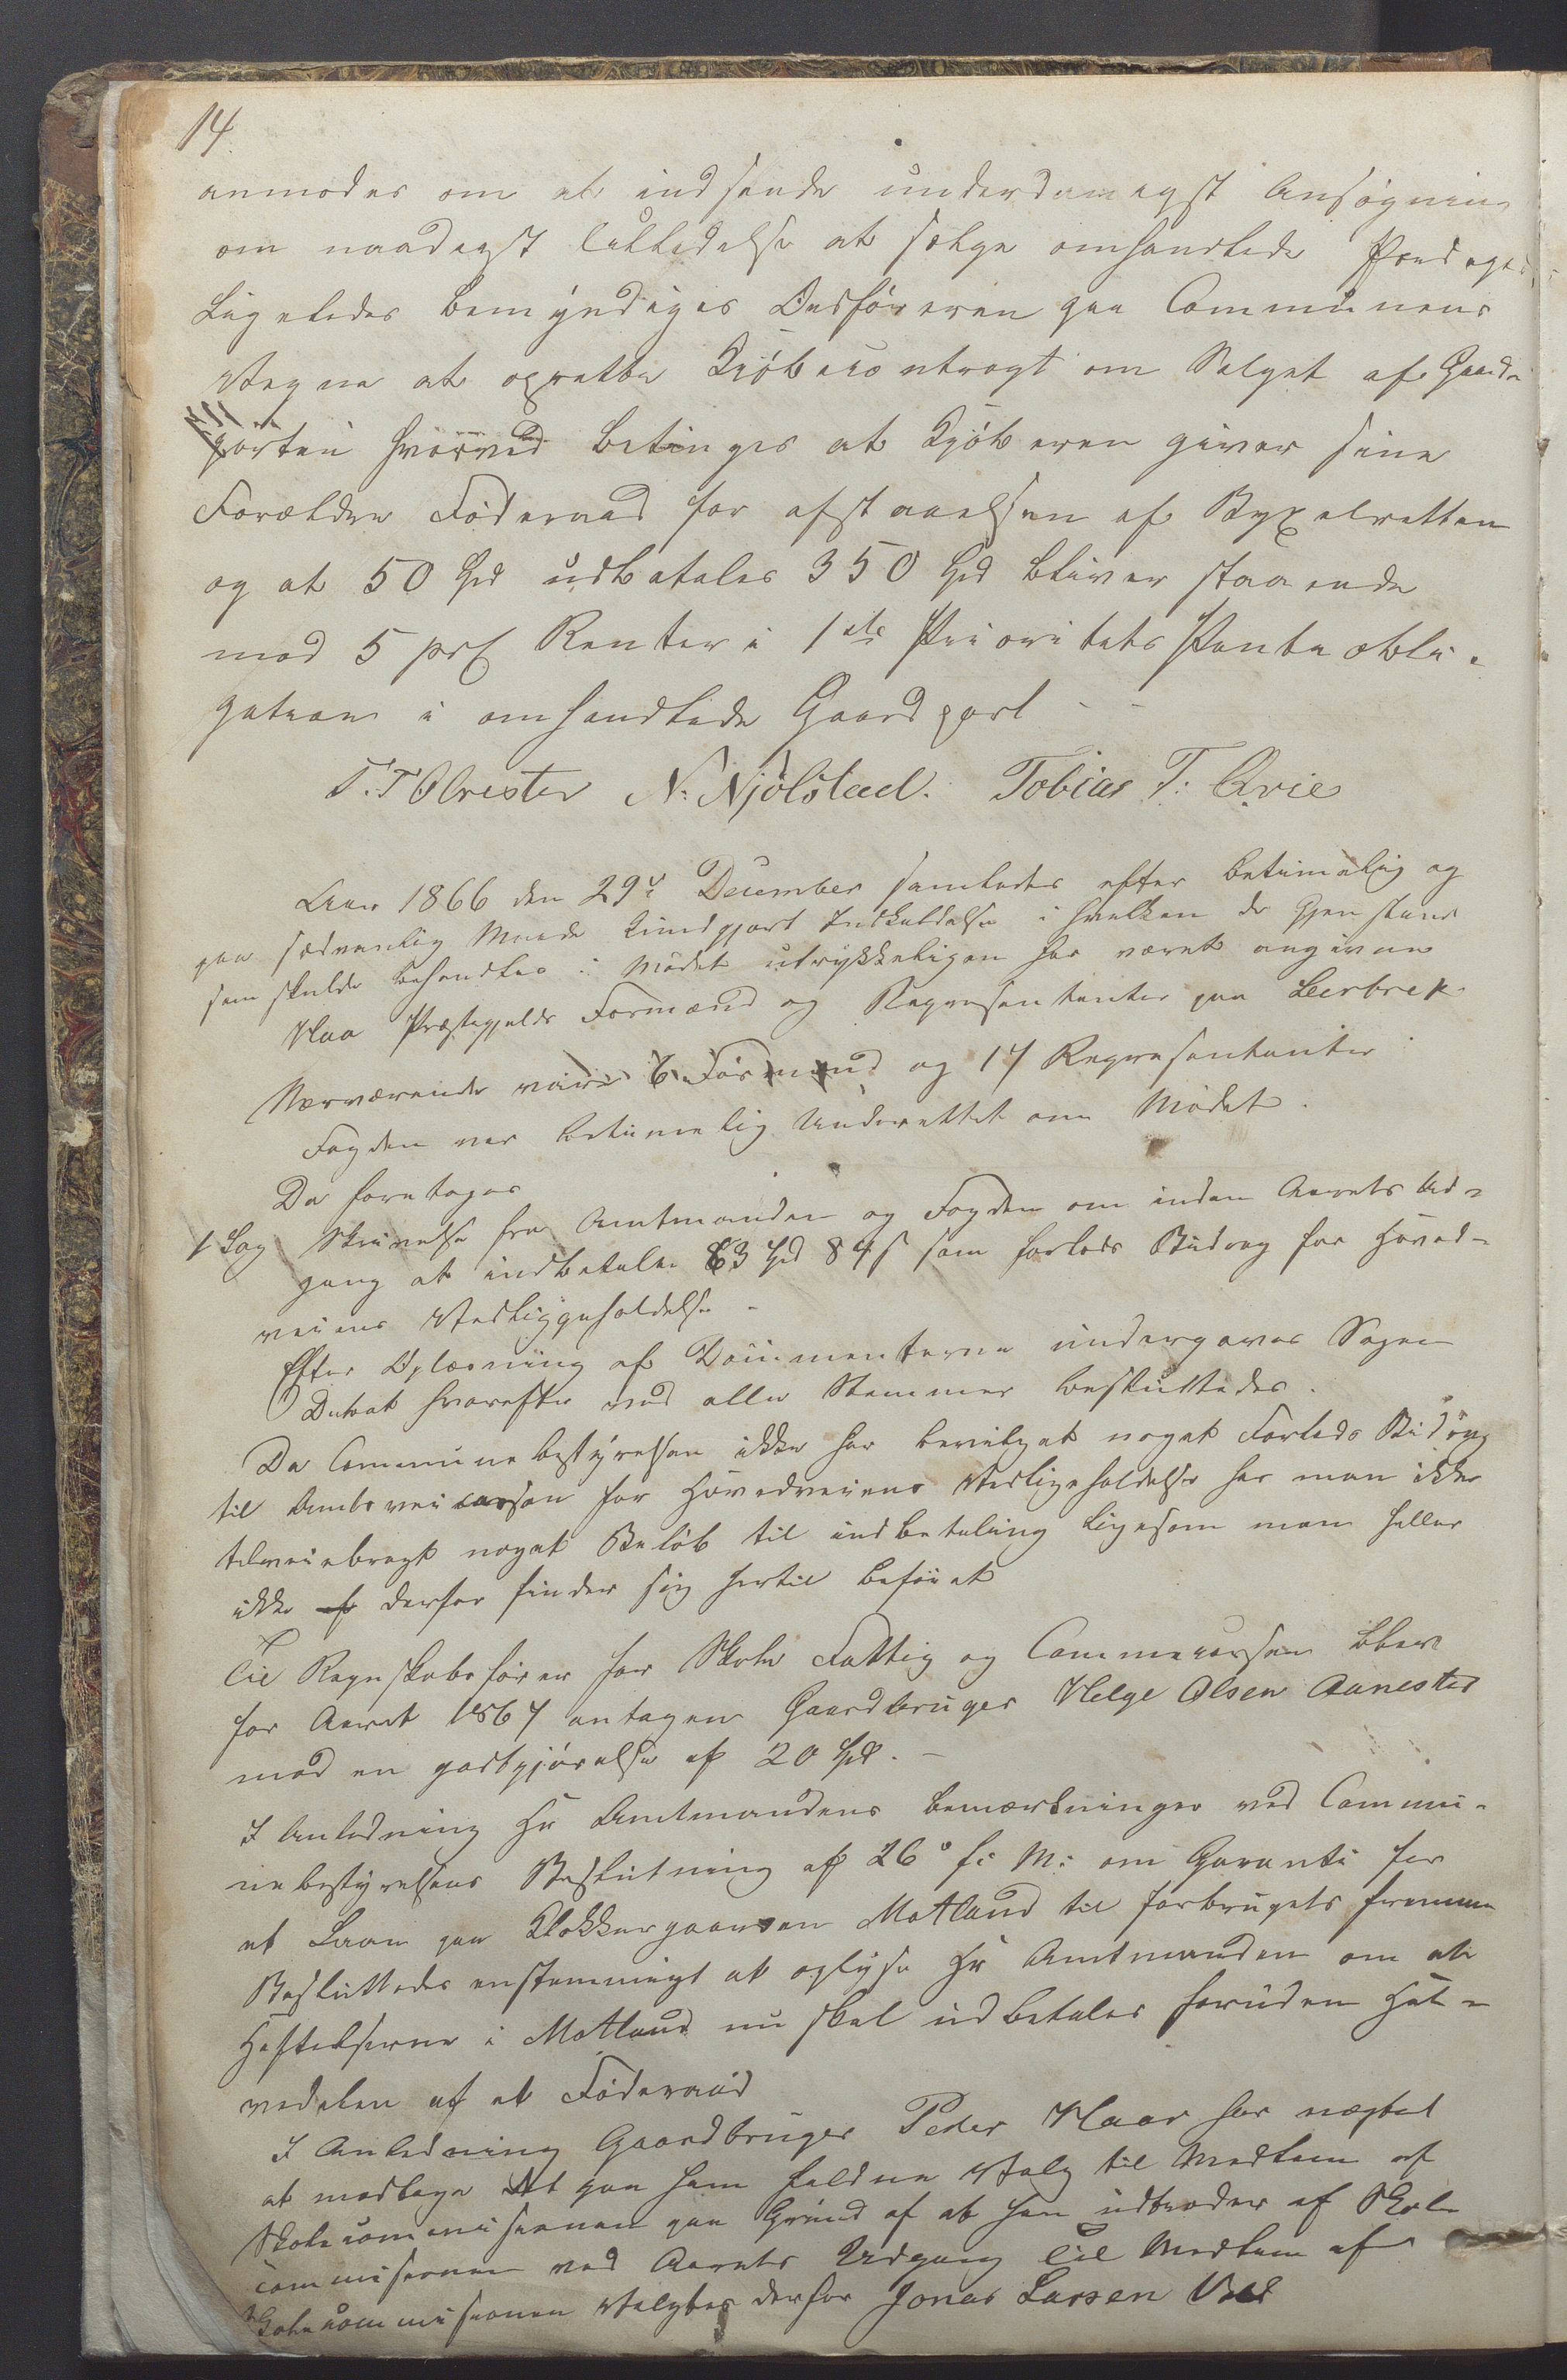 14
anmodes om at indsende underdanigst Ansøgning
om naadigst tilladelse at sælge omhandlede
Ligeledes bemyndiges Ordføreren paa Communens
Vegne at oprette Kjøbecontragt om Salget af Gaard-
parten hvorved betinges at Kjøberen giver sine
Forældre Föderaad for afstaaelsen af Byxelretten
og at 50 Spd udbetales 350 Spd bliver staaende
mod 5 prC Renter i 1ste Prioritets Panteobli-
gation i omhandlede Gaardpart - -
T. T Obrestad N. Njølstad. Tobias T: Qvie
Aar 1866 den 29de December samledes efter betimelig og
paa sædvanlig Maade kundgjort Indkaldelse i hvilken de Gjenstande
som skulde behandles i Mødet udtrykkeligen har været angivne
Haa Præstegjelds Formænd og Repræsentanter paa Leerbrek
Nærværende vare 6 Formænd og 17 Repræsentanter
Fogden var betimelig Underrettet om Mødet.
Da foretoges
1 Sag Skrivelse fra Amtmanden og Fogden om inden Aarets Ud-
gang at indbetale 63 Spd 84 s som forlods Bidrag for Hoved-
veiens Vedligeholdelse -
Efter Oplæsning af Documenterne undergaves Sagen
Debat hvorefter med alle Stemmer besluttedes.
Da Communebestyrelsen ikke har bevilget noget Forlods Bidrag
til Amtsveicassen for Hovedveiens Vedligeholdelse har man ikke
tilveiebragt noget Beløb til indbetaling ligesom man heller
ikke derfor finder sig hertil beføiet
Til Regnskabsfører for Skole Fattig og Communecassen blev
for Aaret 1867 antagen Gaardbruger Helge Olsen Aanestad
mod en godtgjørelse af 20 Spd. -
I Anledning Hr Amtmandens bemærkninger ved Commu-
nebestyrelsens Beslutning af 26de f: M: om Garanti for
et Laan paa Klokkergaarden Motland til Jordbrugets fremme
Besluttedes enstemmigt at oplyse Hr Amtmanden om at
Heftelserne i Motland nu skal udbetales foruden Hal-
vedelen af et Föderaad
I Anledning Gaardbruger Peder Haar har nægtet
at modtage det paa ham faldne Valg til Medlem af
Skolecommisionen paa Grund af at han udtræder af Skole
commisionen ved Aarets Udgang Til Medlem af
Skolecommisionen Valgtes derfor Jonas Larsen